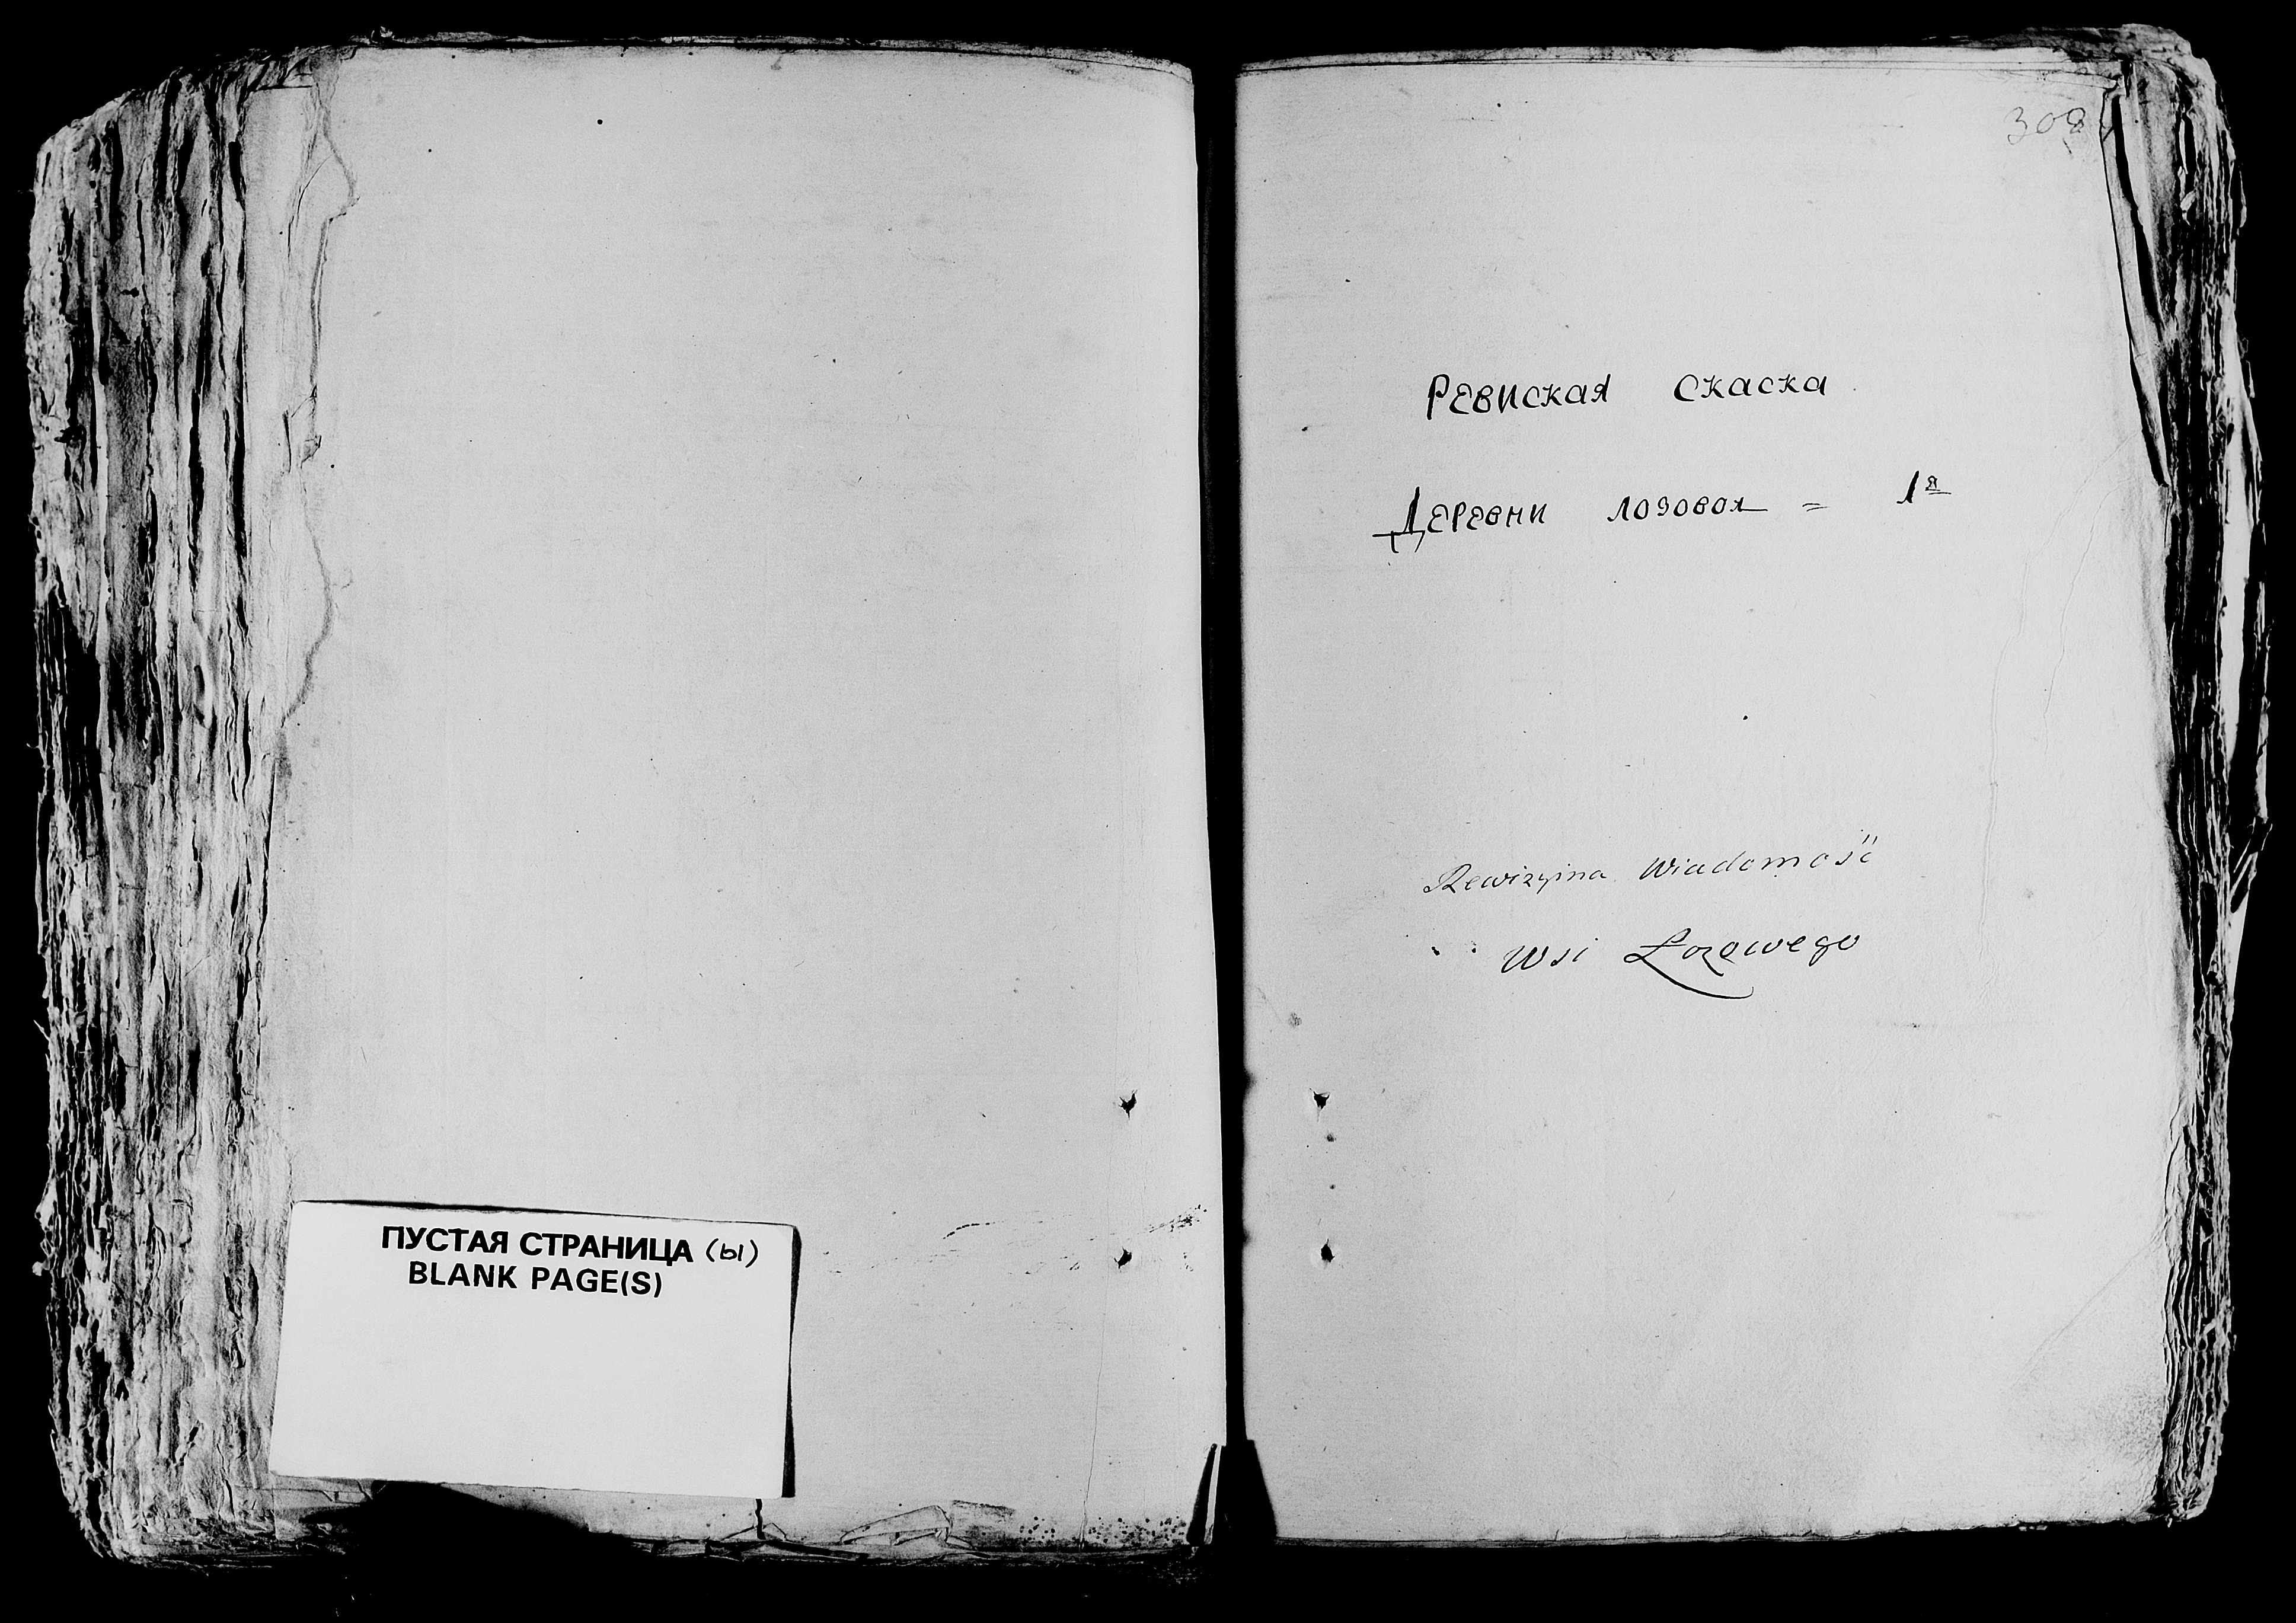 ПУСТАЯ СТРАНИЦА (ы)
BLANK PAGE(S)
308
Ревиская скаска
Деревни лозовоя = 1я
Rewizyina Wiadomość
Wsi Łozowego